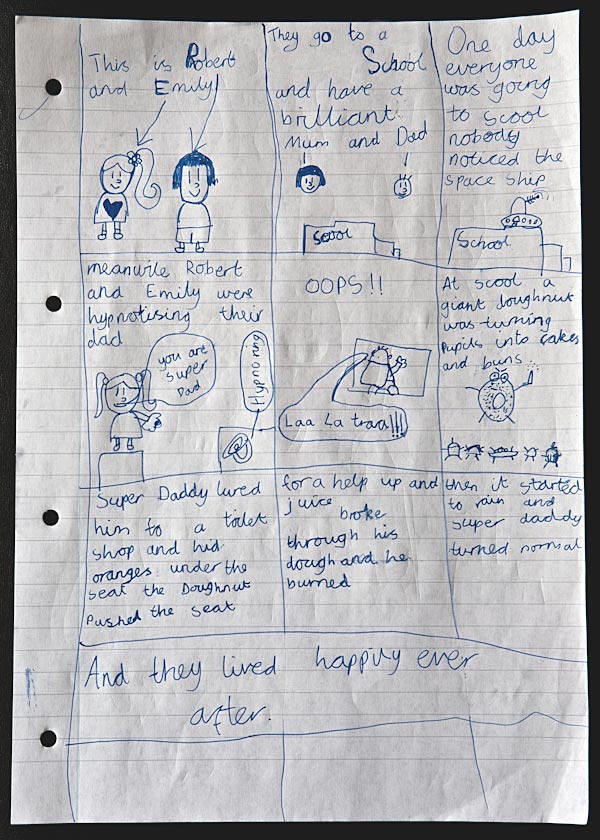 This is Robert
and Emily
They go to a
School
and have a
brilliant
Mum and Dad
scool
One day
everyone
was going
to scool
nobody
noticed the
space ship
School
meanwile Robert
and Emily were
hypnotising their
dad
you are
super
Dad
Hypno ring
OOPS!!
Laa La traa!!!
At scool a
giant doughnut
was turning
pupils into cakes
and buns
Super Daddy lured
him to a toilet
shop and hid
oranges under the
seat the Doughnut
Pushed the seat
for a help up and
juice
broke
through his
dough and he
burned
then it started
to rain and
super daddy
turned normal
And they lived happily ever
after.